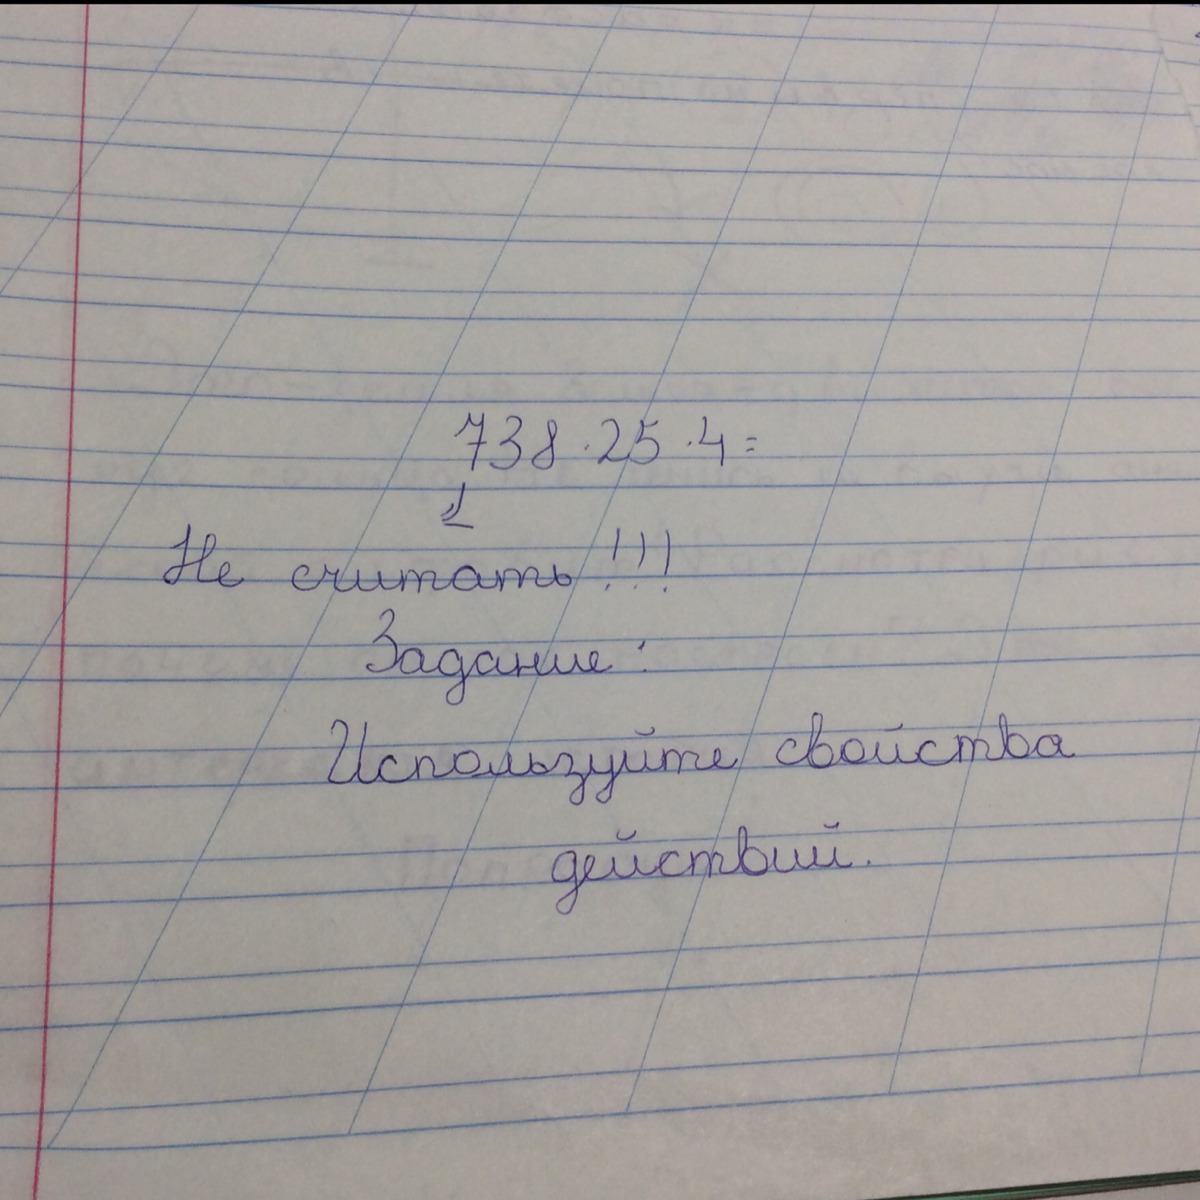 738 · 25 · 4 =
Не считать!!!
Задание:
Используйте свойства
действий.